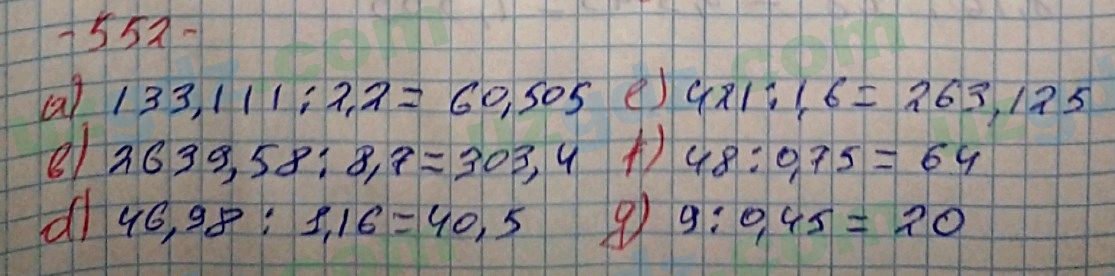 -552-
a) 133,111:2,2= 60,505 e) 421:1,6= 263,125
b) 2639,58:8,7=303,4 f) 48:0,75=64
d) 46,98 : 1,16=40,5 g) 9:0,45=20